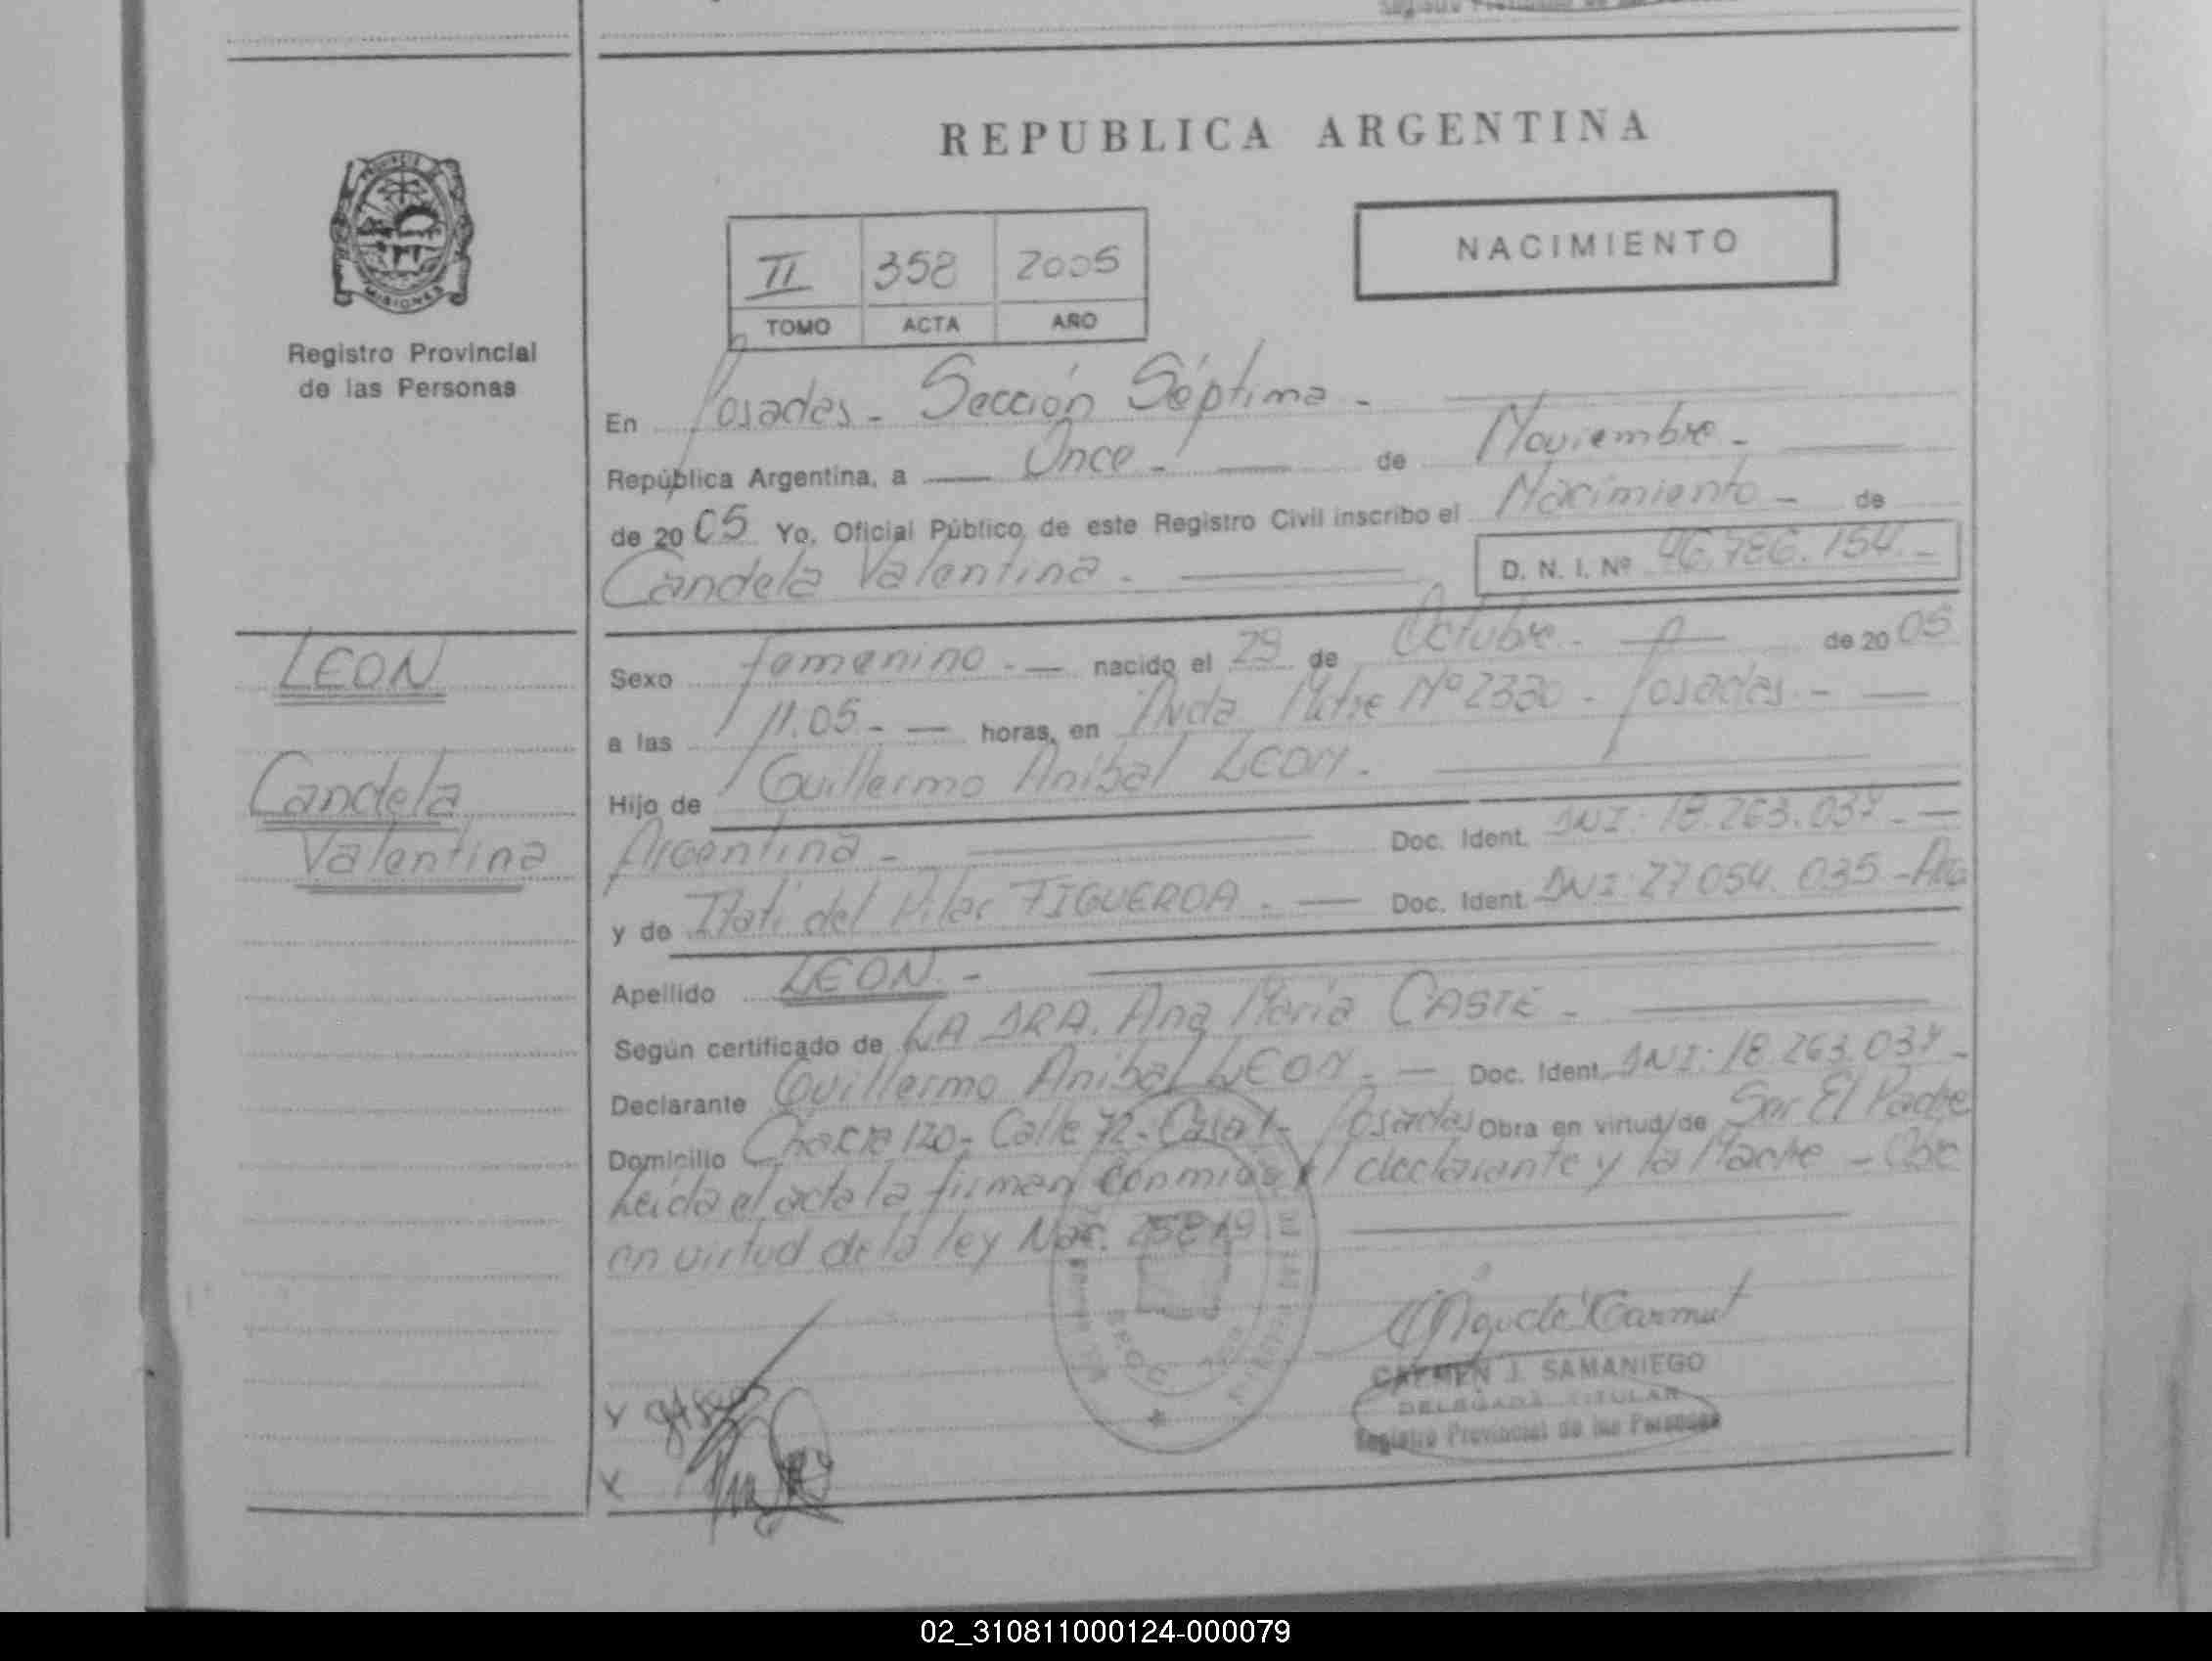 REPUBLICA ARGENTINA
MISIONES
Registro Provincial
de las Personas
NACIMIENTO
II 358 2005
TOMO ACTA AÑO
En Posadas - Sección Séptima -
República Argentina, a Once - de Noviembre -
de 2005 Yo, Oficial Público de este Registro Civil inscribo el Nacimiento - de
Candela Valentina - D. N. I. Nº 46.786.154.-
LEON
Candela
Valentina
Sexo femenino - nacido el 29 de Octubre - de 2005
a las 11.05 - horas, en Avda Mitre Nº 2330 - Posadas -
Hijo de Guillermo Anibal LEON.
Argentina - Doc. Ident. DNI: 18.263.037 -
y de Itati del Pilar FIGUEROA - Doc. Ident. DNI: 27.054.035 - Arg
Apellido LEON -
Según certificado de LA DRA. Ana María CASTE -
Declarante Guillermo Anibal LEON - Doc. Ident. DNI: 18.263.037 -
Domicilio Chacra 120 - Calle 72 - Casa 1 - Posadas Obra en virtud de Ser El Padre
Leída el acta la firman conmigo el declarante y la Madre -
en virtud de la ley Nac.
CARMEN J. SAMANIEGO
DELEGADA TITULAR
Registro Provincial de las Personas
02_310811000124-000079